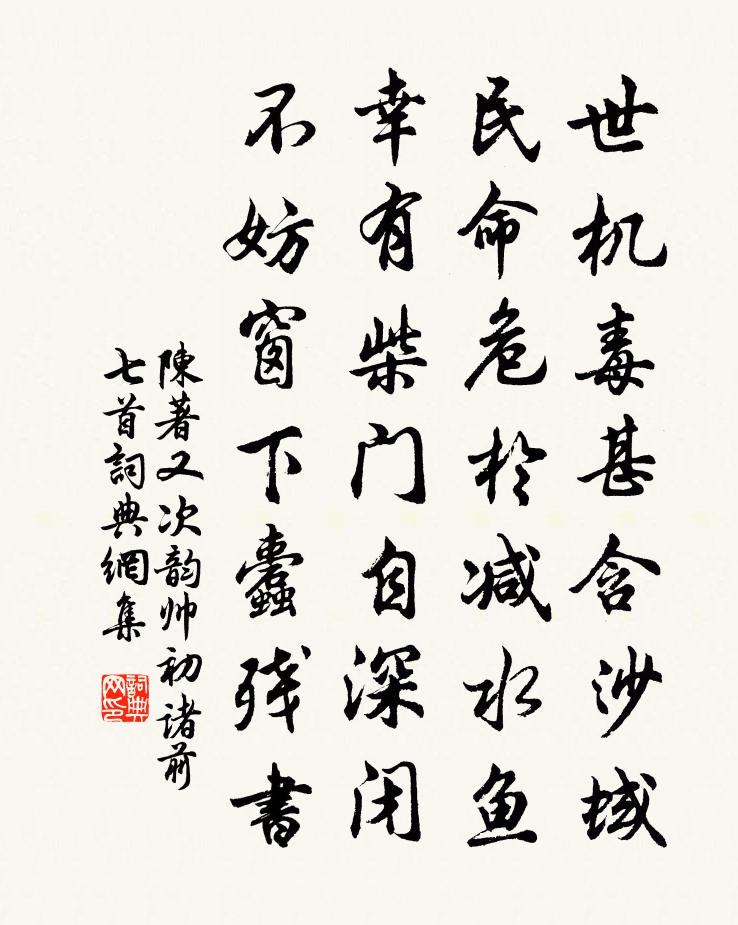 世机毒甚含沙域
民命危於减水鱼
幸有柴门自深闭
不妨窗下蠹残書
陳著又次韵帅初诸前
七首詞典網集
詞典网印